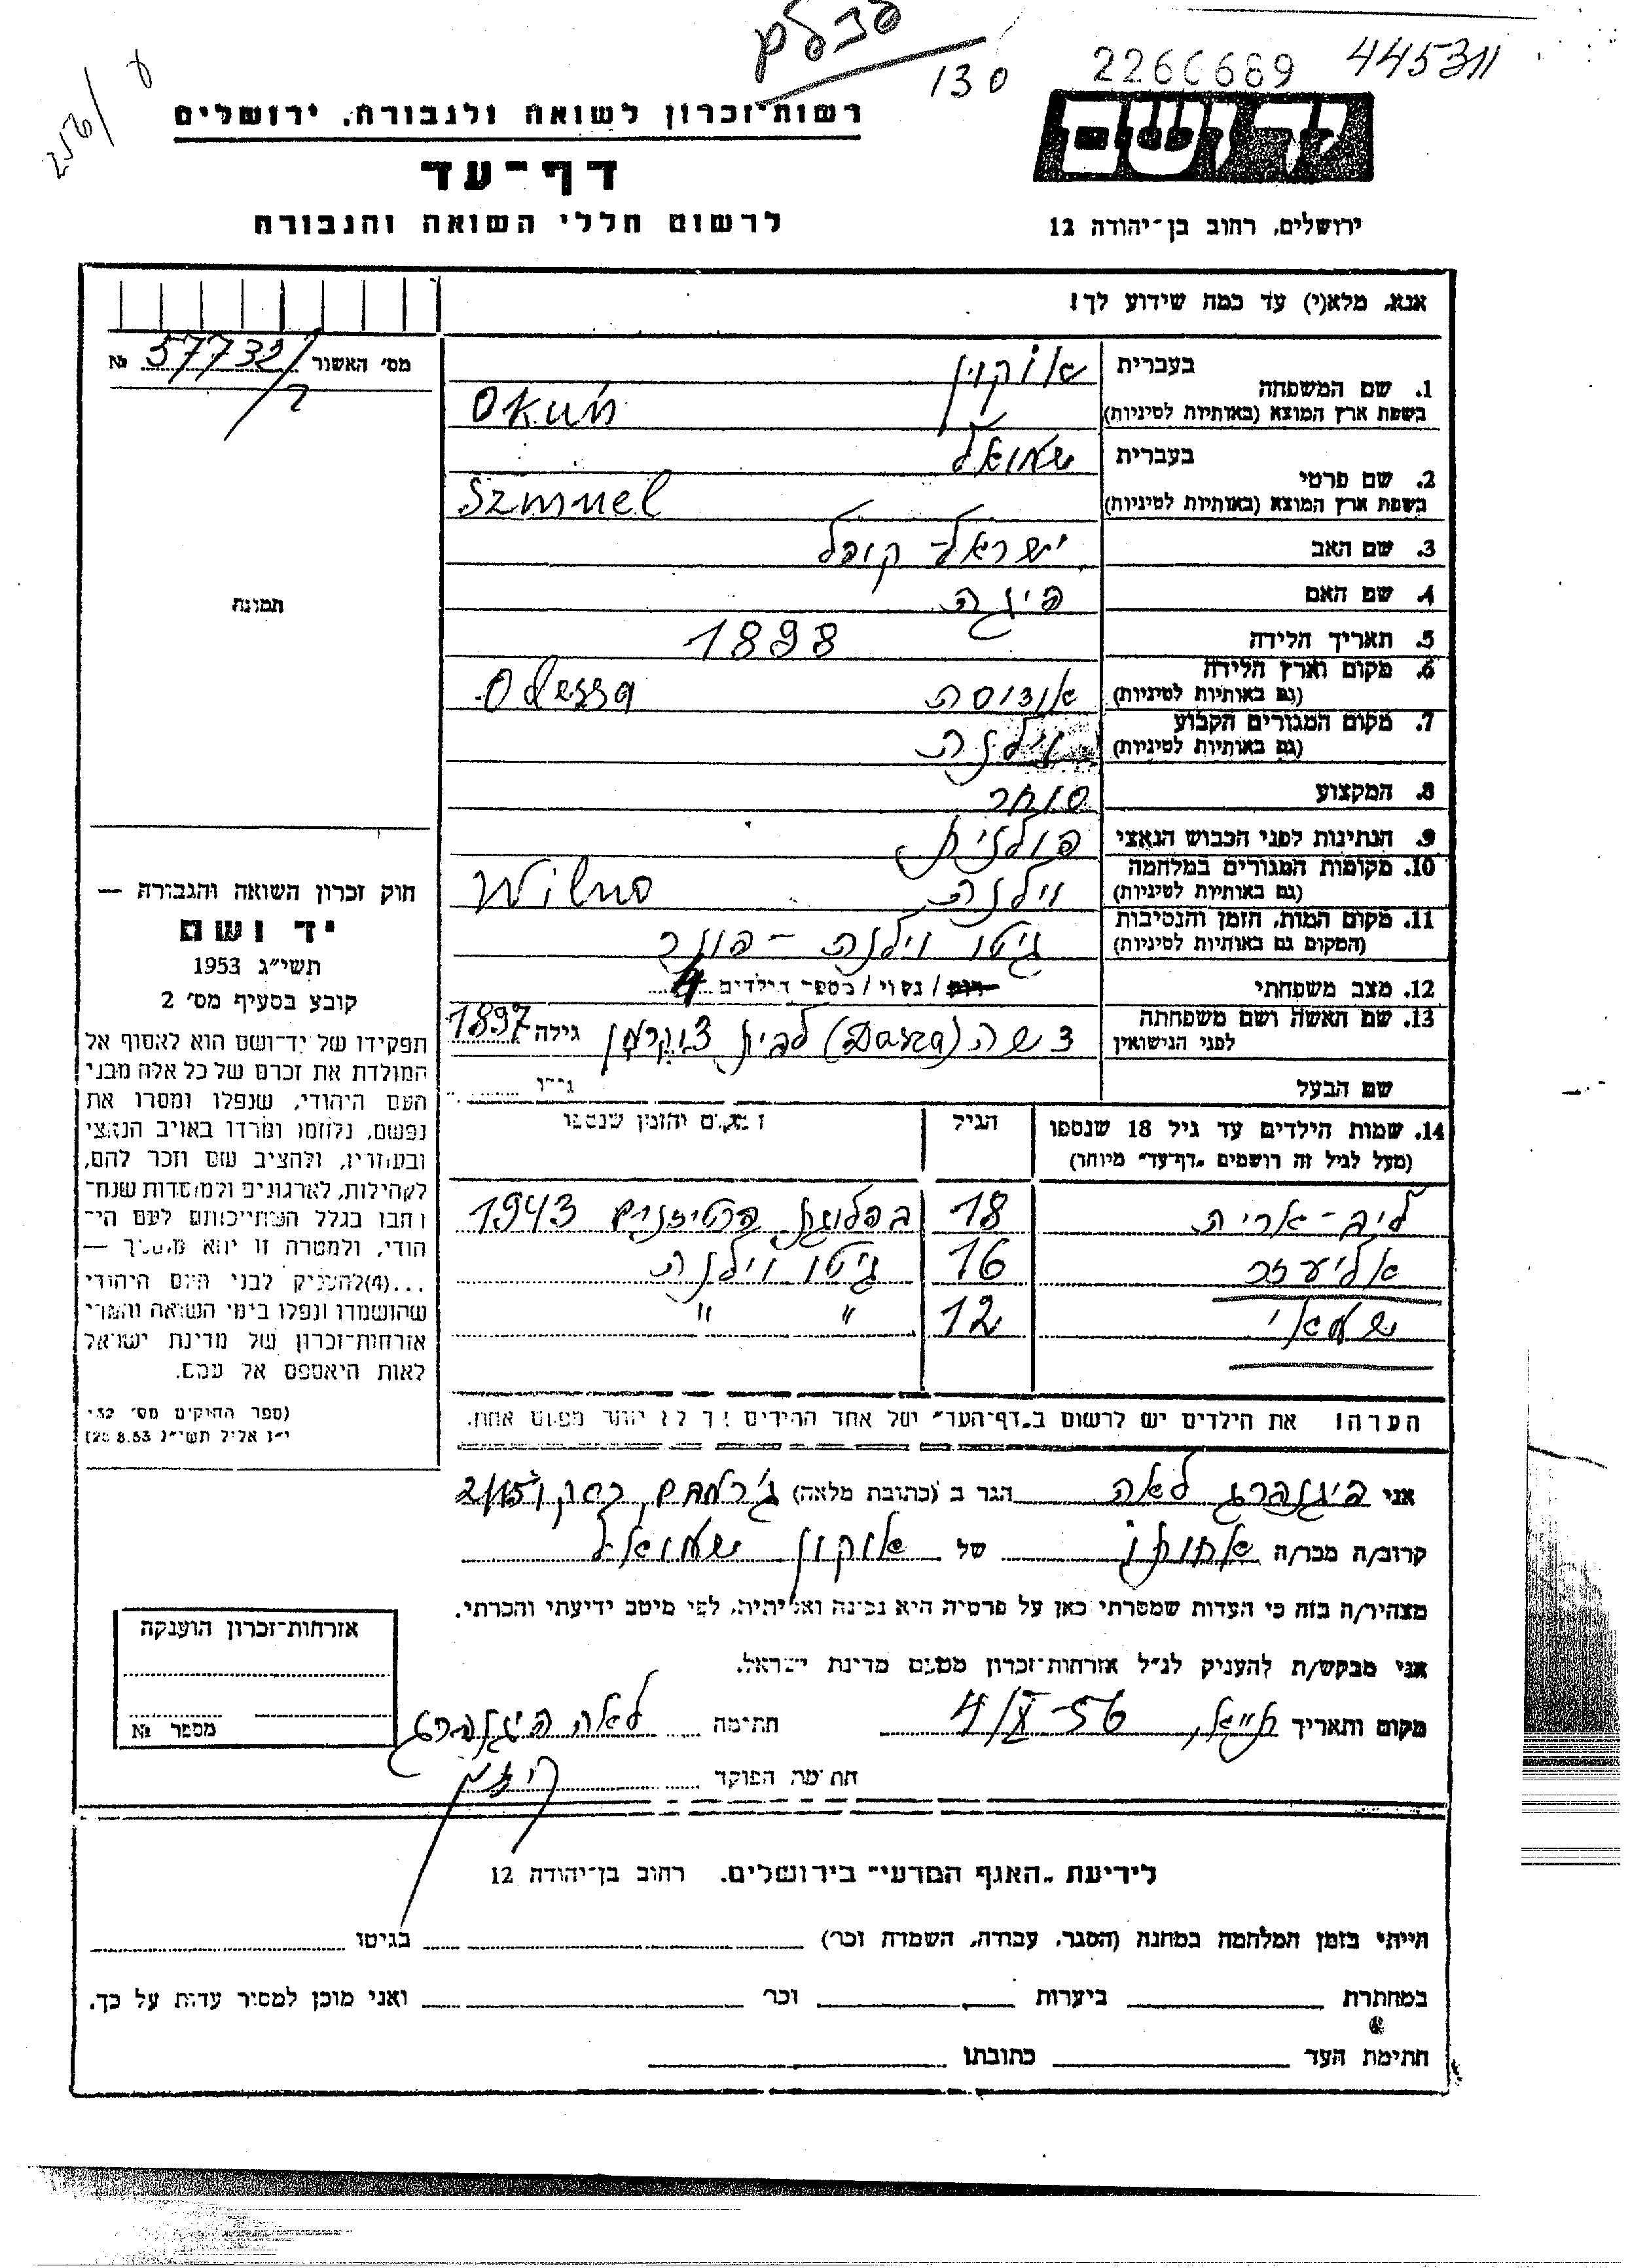 לבלם
130
2266689
445311
256/8
רשות־זכרון לשואה ולגבורה, ירושלים
דף־עד
לרשום חללי השואה והגבורה
יד ושם
ירושלים, רחוב בן־יהודה 12
אנא, מלא(י) עד כמה שידוע לך!
מס' האשור 57732/ №
1. שם המשפחה
בעברית אוקון
בשפת ארץ המוצא (באותיות לטיניות) Okuń
2. שם פרטי
בעברית שמואל
בשפת ארץ המוצא (באותיות לטיניות) Szmuel
3. שם האב ישראל־קופל
4. שם האם פיגה
תמונה
5. תאריך הלידה 1898
6. מקום וארץ הלידה
(גם באותיות לטיניות) אודוסה Odessa
7. מקום המגורים הקבוע
(גם באותיות לטיניות) וילנה
8. המקצוע סוחר
9. הנתינות לפני הכבוש הנאצי פולנית
10. מקומות המגורים במלחמה
(גם באותיות לטיניות) וילנה Wilno
11. מקום המות, הזמן והנסיבות
(המקום גם באותיות לטיניות) גיטו וילנה - פונר
12. מצב משפחתי רווק / נשוי / מספר הילדים 4
13. שם האשה ושם משפחתה
לפני הנישואין דשה (Dasza) לבית צוקרמן גילה 1897
שם הבעל גילו
14. שמות הילדים עד גיל 18 שנספו
(מעל לגיל זה רושמים „דף־עד" מיוחד)
הגיל
המקום והזמן שנספו
ליב-אריה 18 בפלוגת פרטיזנים 1943
אליעזר 16 גיטו וילנה
שמאי 12 " "
הערה! את הילדים יש לרשום ב„דף־העד" של אחד ההורים אך לא יותר מפעם אחת.
חוק זכרון השואה והגבורה —
יד ושם
תשי"ג 1953
קובע בסעיף מס' 2
תפקידו של יד־ושם הוא לאסוף אל
המולדת את זכרם של כל אלה מבני
העם היהודי, שנפלו ומסרו את
נפשם, נלחמו ומרדו באויב הנאצי
ובעוזריו, ולהציב שם וזכר להם,
לקהילות, לארגונים ולמוסדות שנח־
רבו בגלל השתייכותם לעם הי־
הודי, ולמטרה זו יהא מוסמך —
...(4)להעניק לבני העם היהודי
שהושמדו ונפלו בימי השואה והמרי
אזרחות־זכרון של מדינת ישראל
לאות היאספם אל עמם.
(ספר החוקים מס' 132
י"ז אלול תשי"ג 28.8.53)
אני פיגנברג לאה הגר ב (כתובת מלאה)
קרוב/ה מכר/ה אחותו של אוקון שמואל
מצהיר/ה בזה כי העדות שמסרתי כאן על פרטיה היא נכונה ואמיתית, לפי מיטב ידיעתי והכרתי.
אני מבקש/ת להעניק לנ"ל אזרחות־זכרון מטעם מדינת ישראל.
מקום ותאריך 4/X-56 חתימה לאה פיגנברג
חתימת הפוקד
אזרחות־זכרון הוענקה
מספר №
לידיעת „האגף המדעי" בירושלים, רחוב בן־יהודה 12
הייתי בזמן המלחמה במחנה (הסגר, עבודה, השמדה וכר') בגיטו
במחתרת ביערות וכר' ואני מוכן למסור עדות על כך.
חתימת העד כתובתו